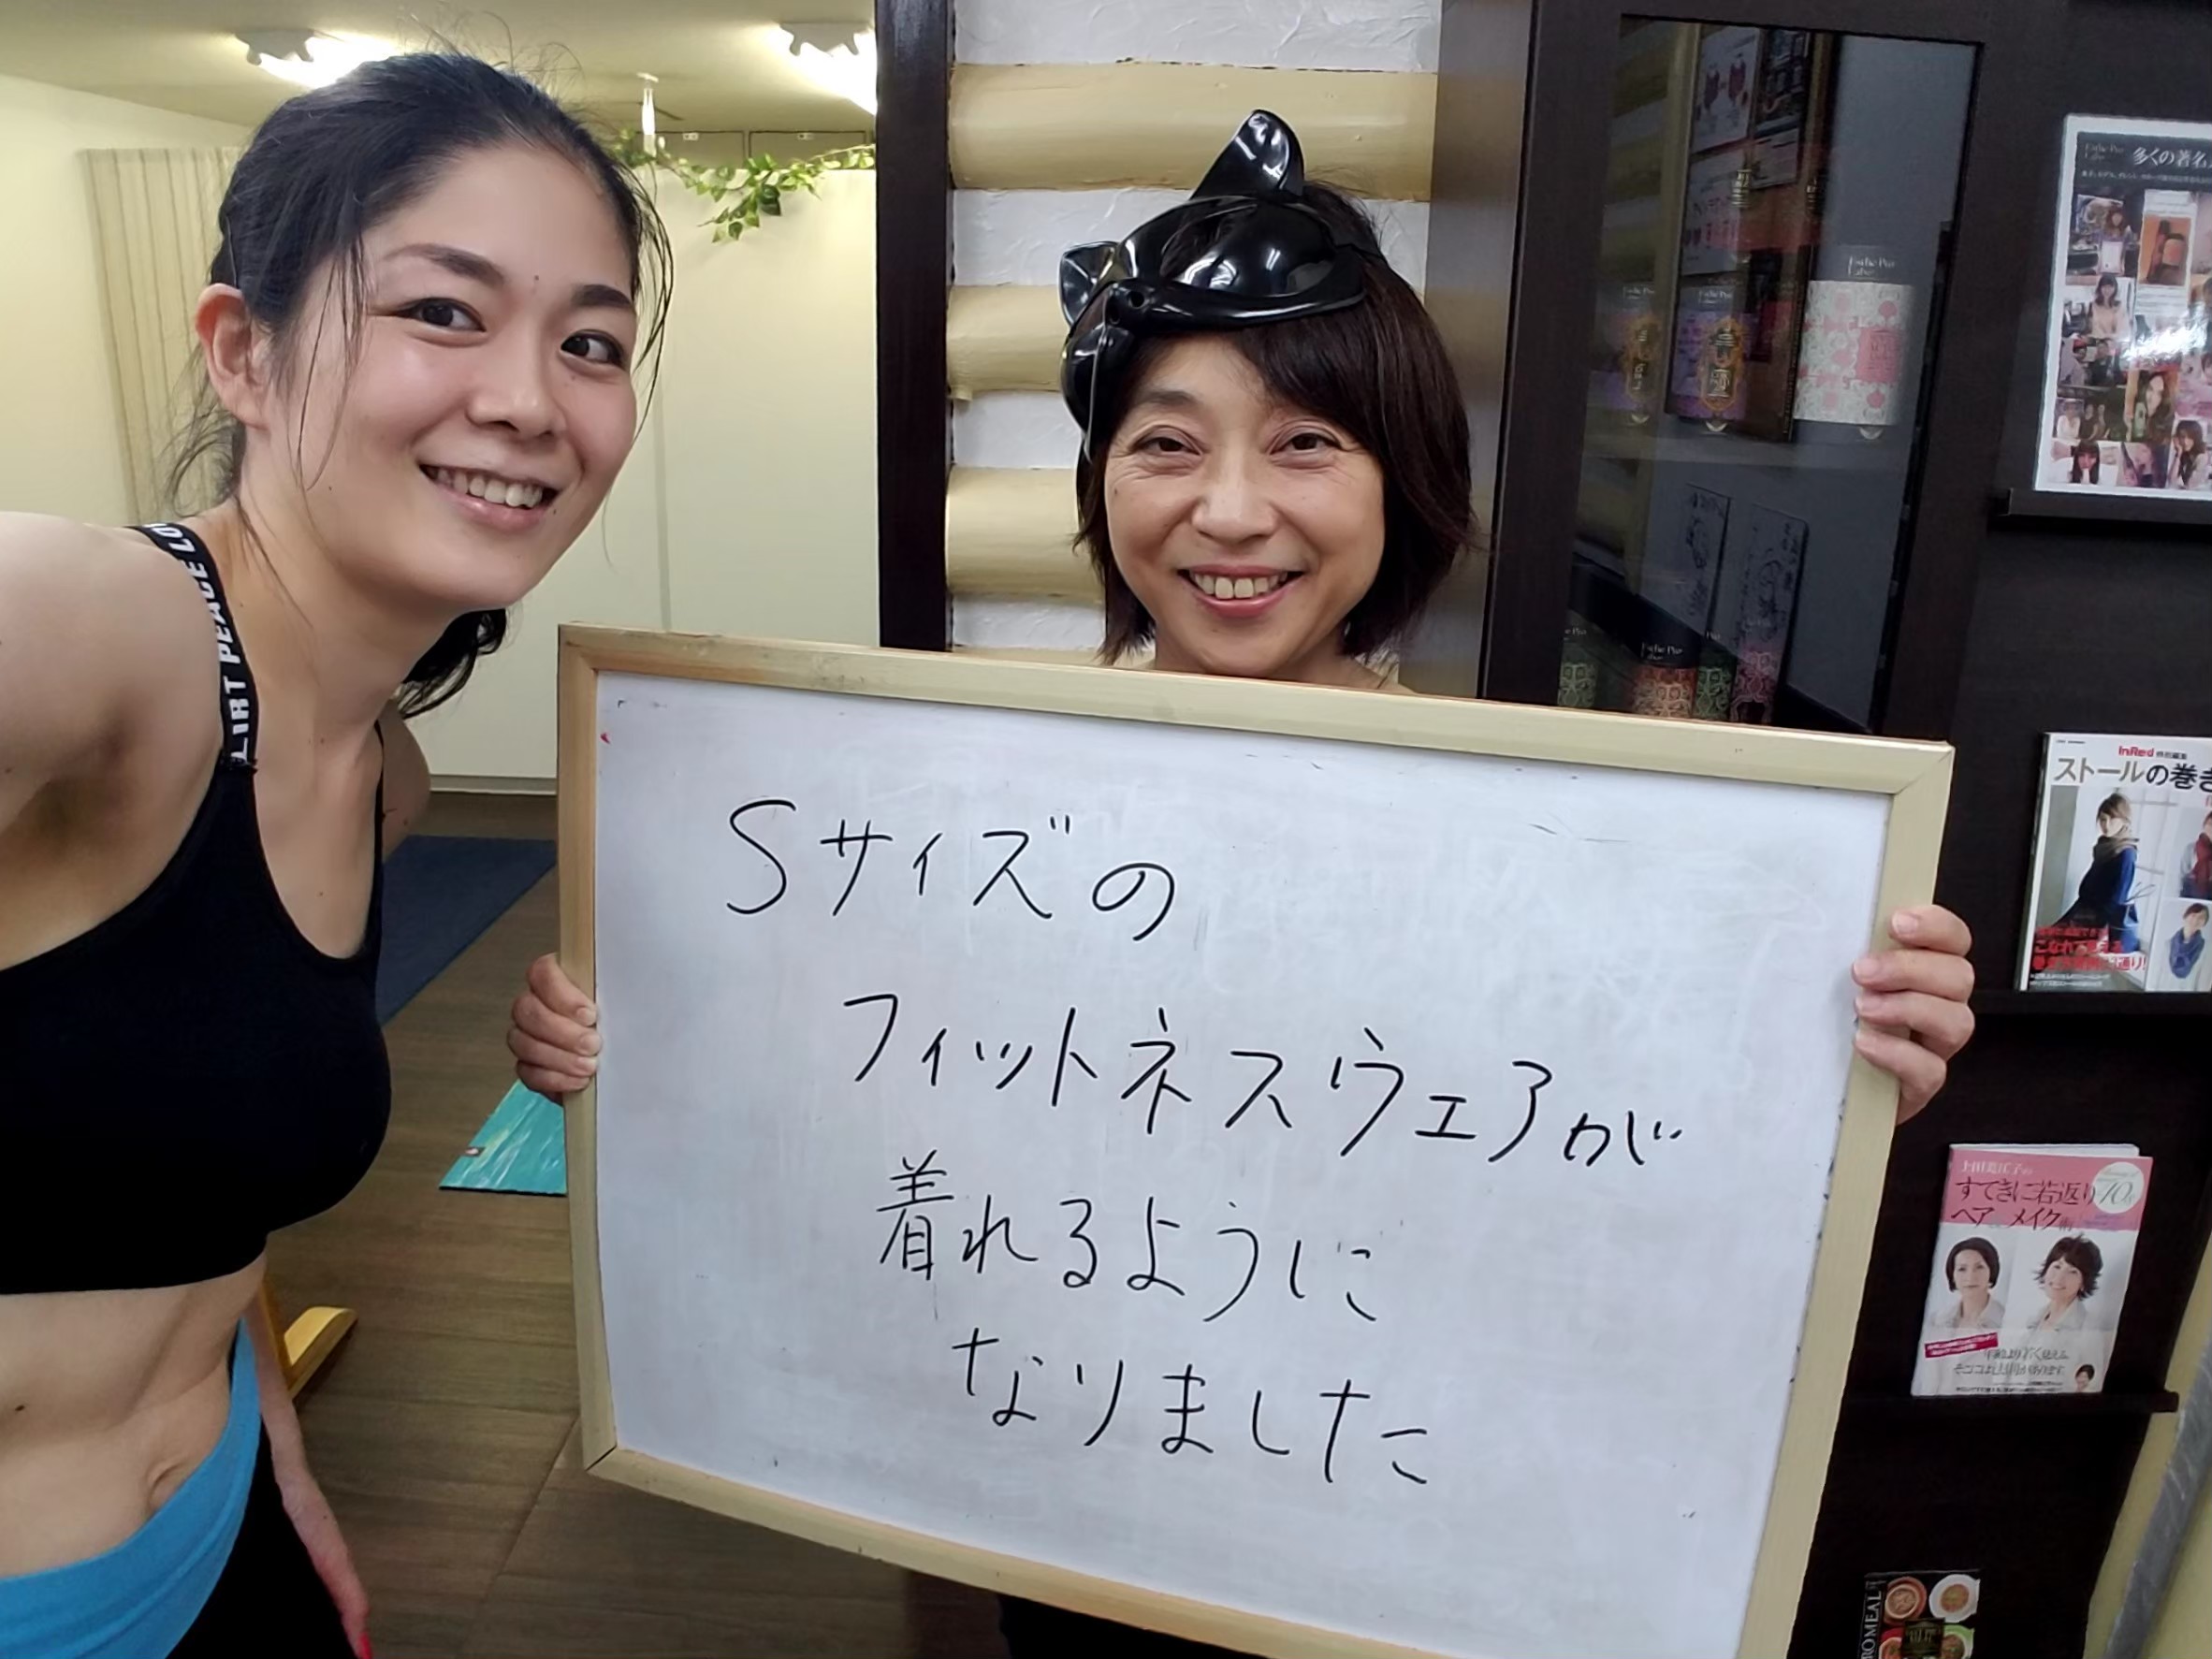 Sサイズの
フィットネスウェアが
着れるように
なりました
PEACE
多くの著名
InRed 特別編集
ストールの巻き
すてきに若返り
ヘア メイク術
10
Esthe Pro
Labo